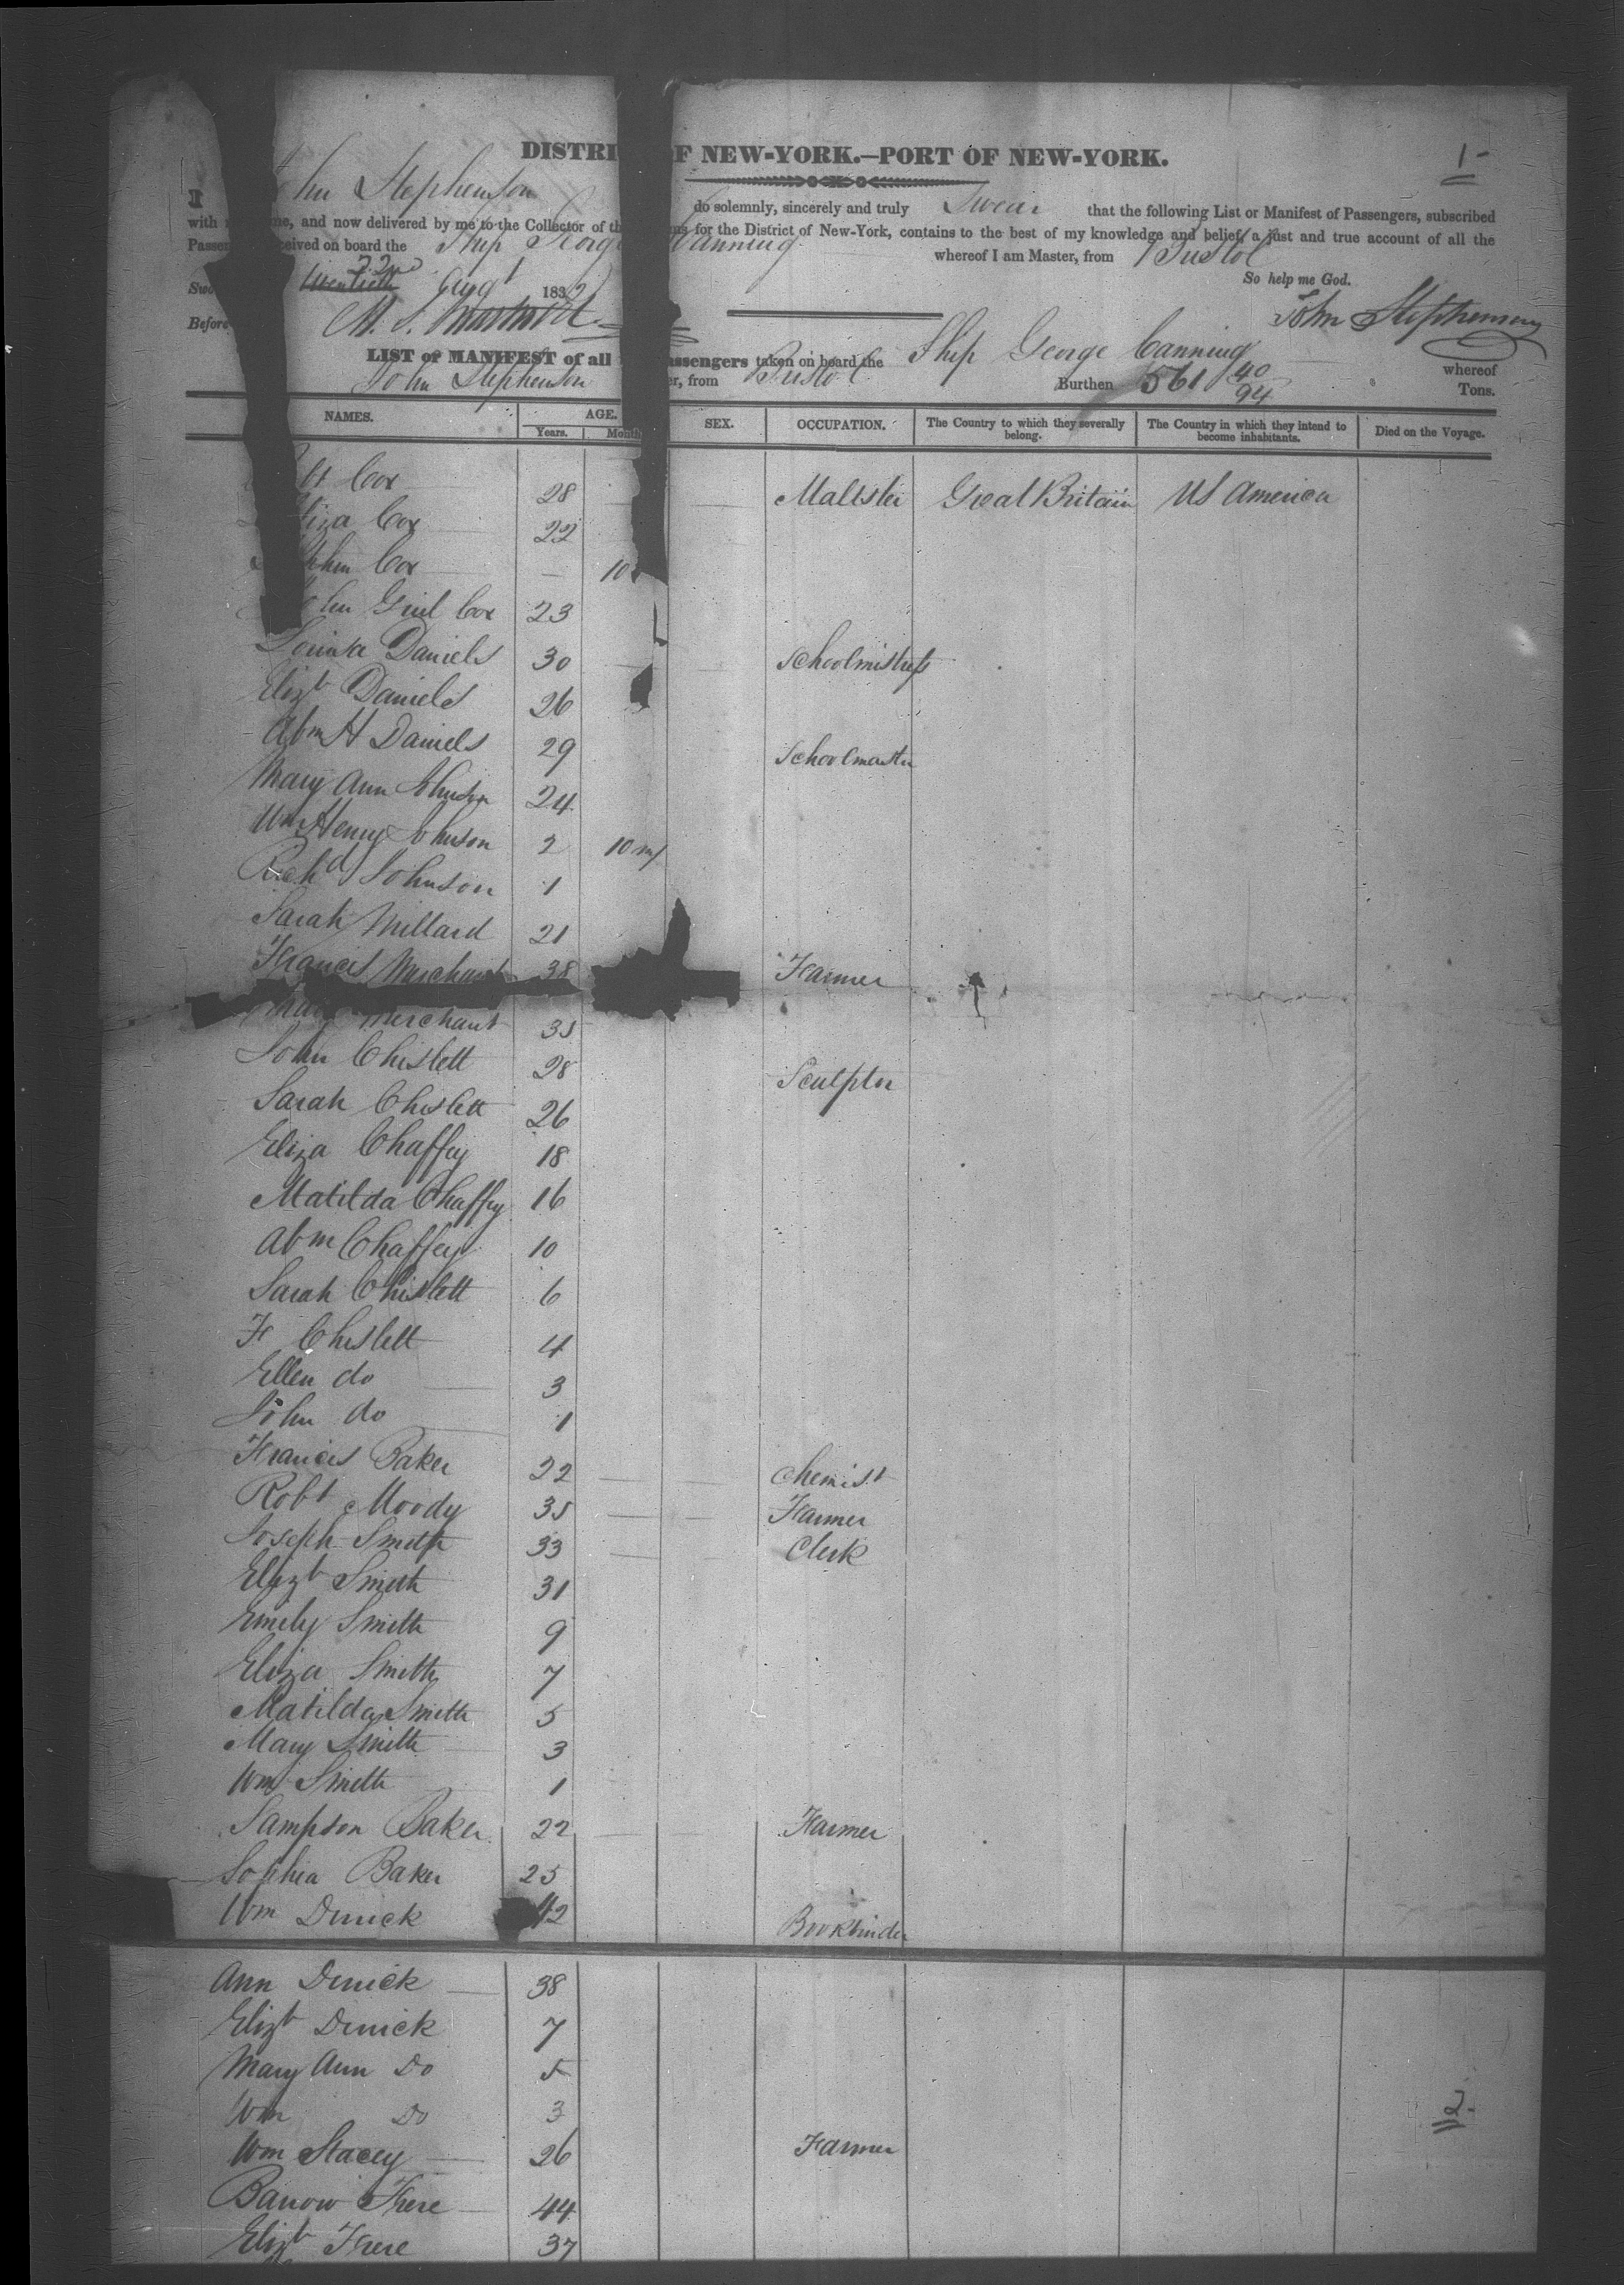 1-
DISTRI F NEW-YORK.—PORT OF NEW-YORK.
I hn Stephenson do solemnly, sincerely and truly Swear that the following List or Manifest of Passengers, subscribed
with me, and now delivered by me to the Collector of th ms for the District of New-York, contains to the best of my knowledge and belief, a just and true account of all the
Passen ceived on board the Ship George Canning whereof I am Master, from Bristol
So help me God.
Swo 22nd Augt 183
Before John Stephenson
LIST or MANIFEST of all assengers taken on board the Ship George Canning whereof
John Stephenson er, from Bristol Burthen 561 40/94 Tons.
NAMES. AGE. SEX. OCCUPATION. The Country to which they severally belong. The Country in which they intend to become inhabitants. Died on the Voyage.
Years. Month
bt Cox 28 Maltster Great Britain US America
liza Cox 22
Cox — 10
ohn Cox 23
Daniels 30 Schoolmistress
Elizt Daniels 26
Abm H Daniels 29 Schoolmaster
Mary Ann Johnson 24
Wm Henry Johnson 2 10 m/
Richd Johnson 1
Sarah Millard 21
Francis Merchant 38 Farmer
Mary Merchant 35
John Chislett 28 Sculptor
Sarah Chislett 26
Eliza Chaffey 18
Matilda Chaffey 16
Abm Chaffey 10
Sarah Chislett 6
F Chislett 4
Ellen do 3
John do 1
Francis Baker 22 Chemist
Robt Moody 35 Farmer
Joseph Smith 33 Clerk
Elizt Smith 31
Emily Smith 9
Eliza Smith 7
Matilda Smith 5
Mary Smith 3
Wm Smith 1
Sampson Baker 22 Farmer
Sophia Baker 25
Wm Derrick 42 Bookbinder
Ann Derrick 38
Elizt Derrick 7
Mary Ann Do 5
Wm Do 3
2-
Wm Stacey 26 Farmer
Barrow Frere 44
Elizt Frere 37